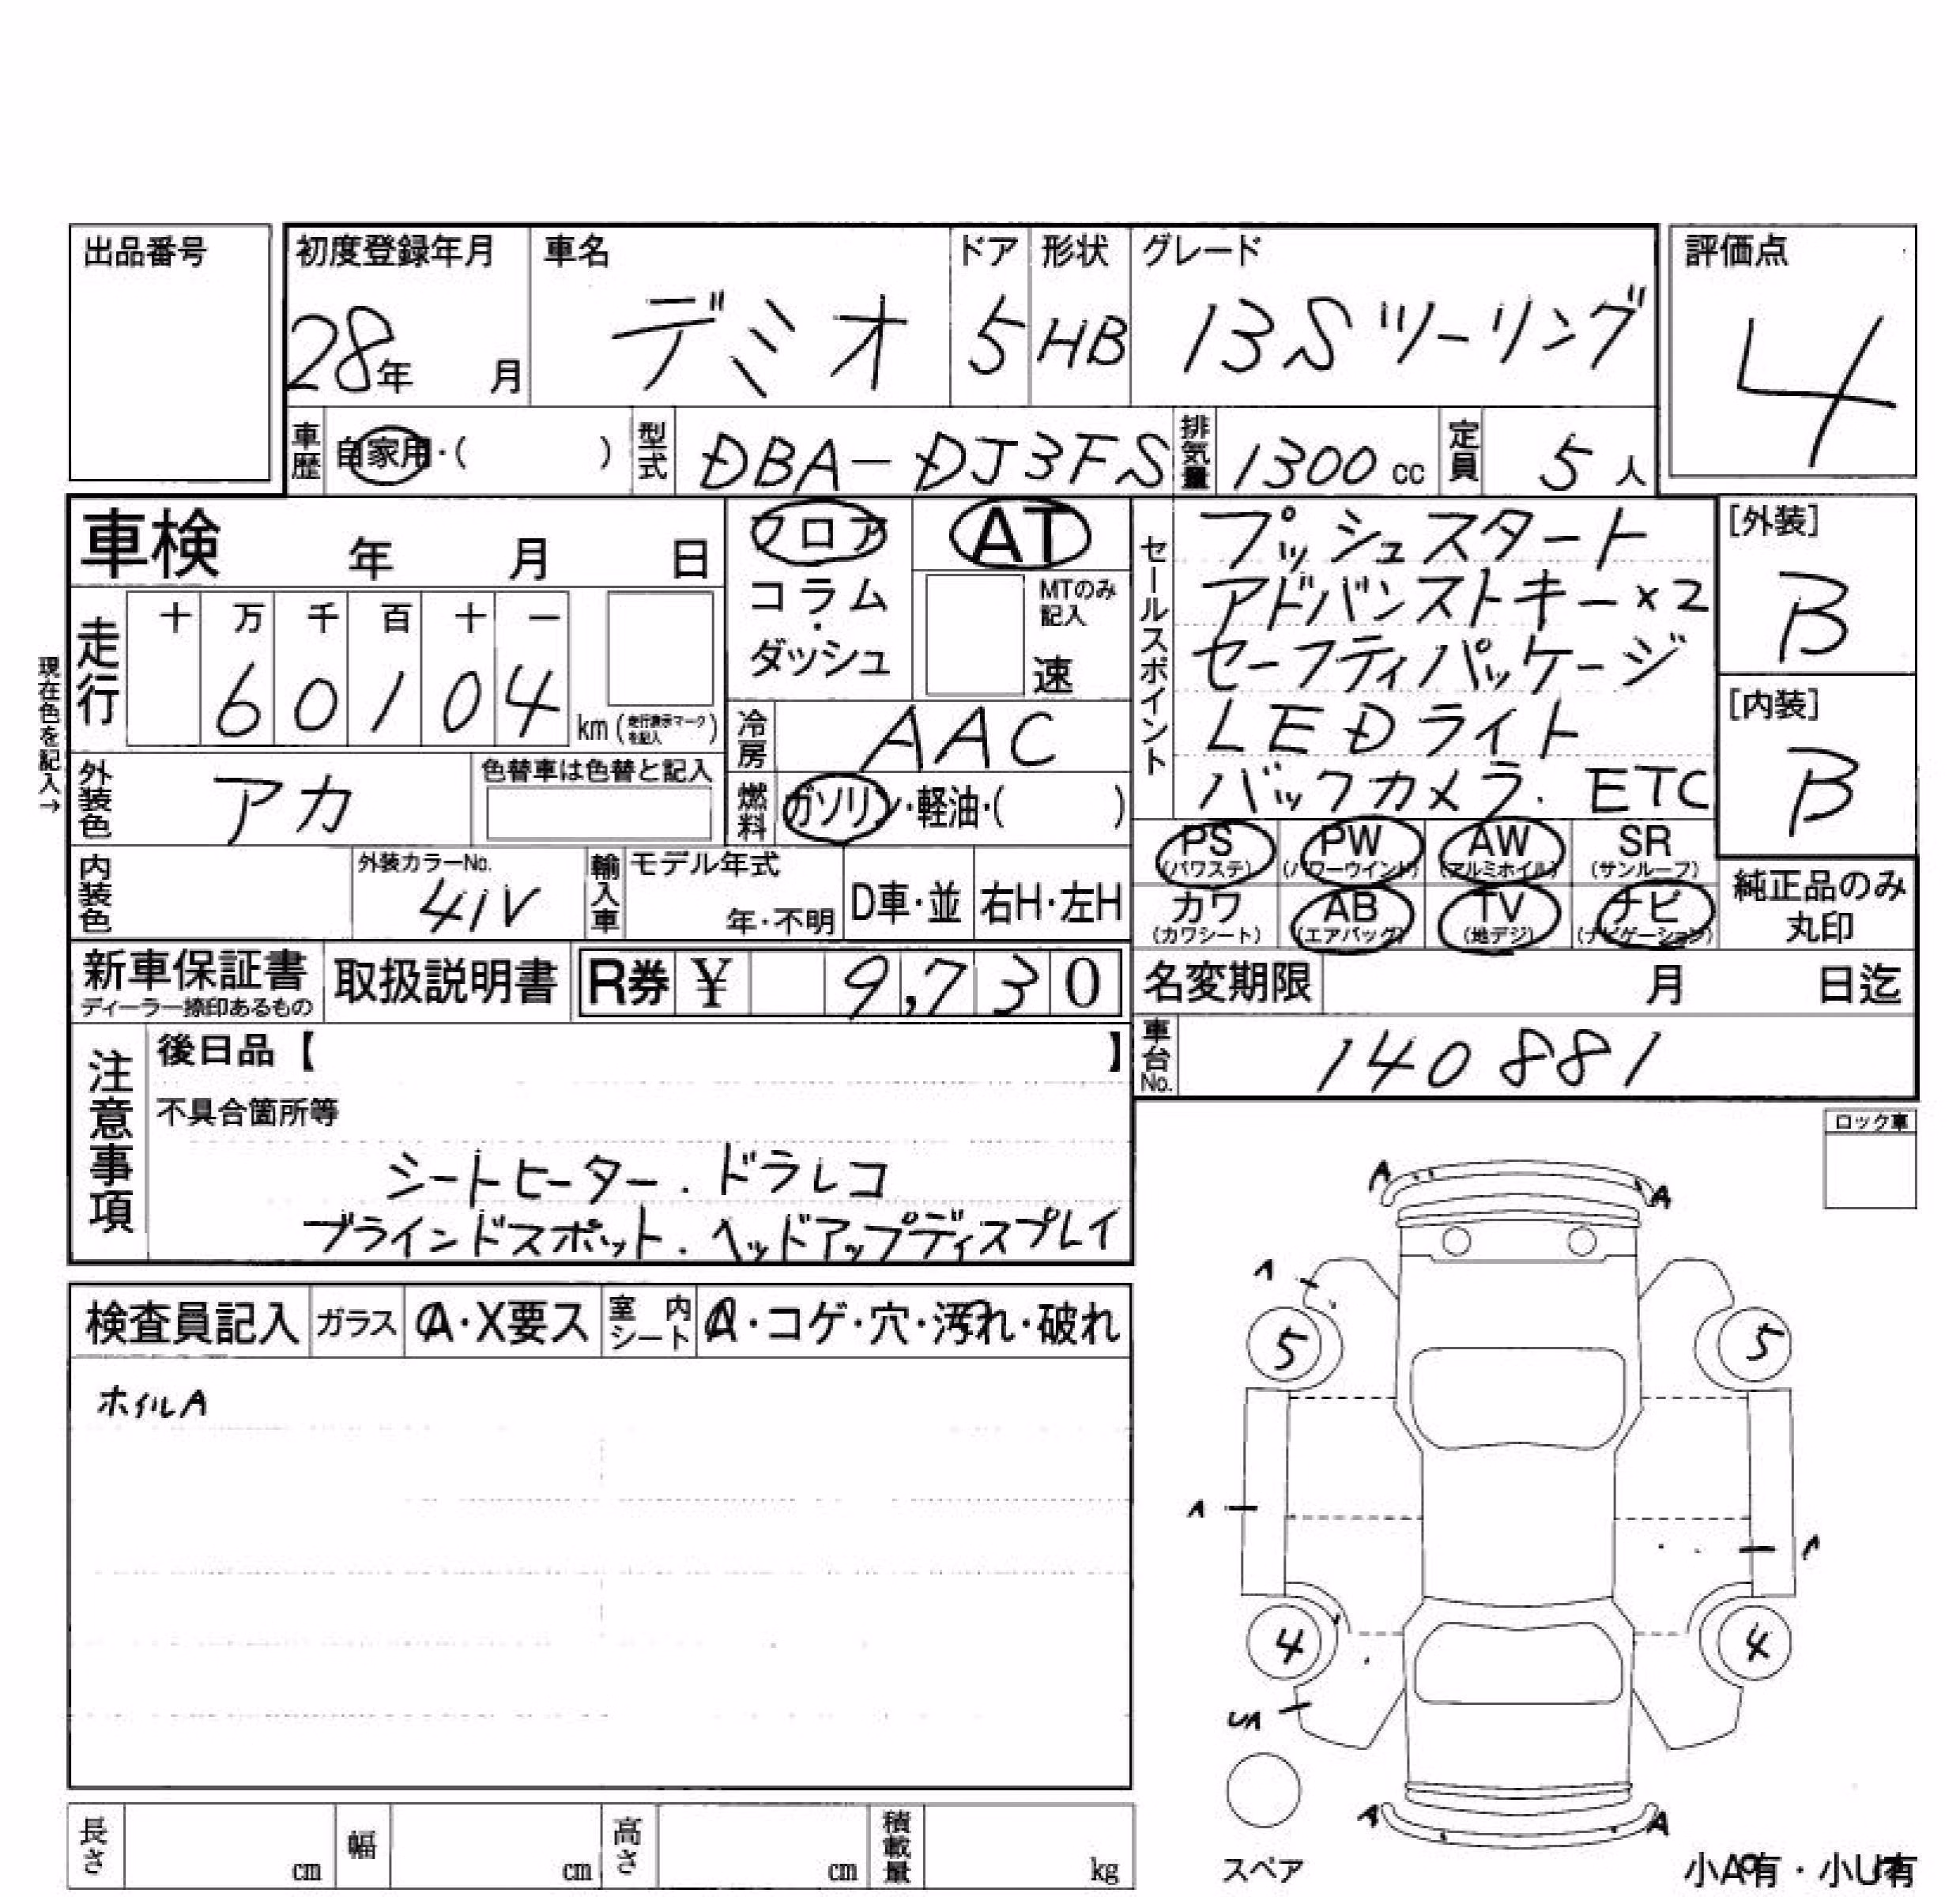 出品番号
初度登録年月 車名 ドア 形状 グレード 評価点
28年 月 デミオ 5 HB 13Sツーリング 4
車歴 自家用・( ) 型式 DBA-DJ3FS 排気量 1300cc 定員 5人
車検 年 月 日
フロア AT
コラム・ダッシュ
MTのみ記入
速
走行 十 万 千 百 十 一
60104 km (走行表示マークを記入)
現在色を記入→
冷房 AAC
外装色 アカ 色替車は色替と記入
燃料 ガソリン・軽油・( )
セールスポイント
プッシュスタート
アドバンストキー×2
セーフティパッケージ
LEDライト
バックカメラ. ETC
[外装]
B
[内装]
B
内装色 外装カラーNo. 41V 輸入車 モデル年式 年・不明 D車・並 右H・左H
PS (パワステ) PW (パワーウインド) AW (アルミホイル) SR (サンルーフ)
カワ (カワシート) AB (エアバッグ) TV (地デジ) ナビ (ナビゲーション)
純正品のみ
丸印
新車保証書 取扱説明書 R券 ¥ 9,730
ディーラー捺印あるもの
名変期限 月 日迄
車台No. 140881
注意事項
後日品【 】
不具合箇所等
シートヒーター. ドラレコ
ブラインドスポット. ヘッドアップディスプレイ
ロック車
検査員記入 ガラス A・X要ス 室内シート A・コゲ・穴・汚れ・破れ
ホイルA
A A
A
5 5
A A
4 4
UA
A A
スペア
長さ cm 幅 cm 高さ cm 積載量 kg
小A有・小U有